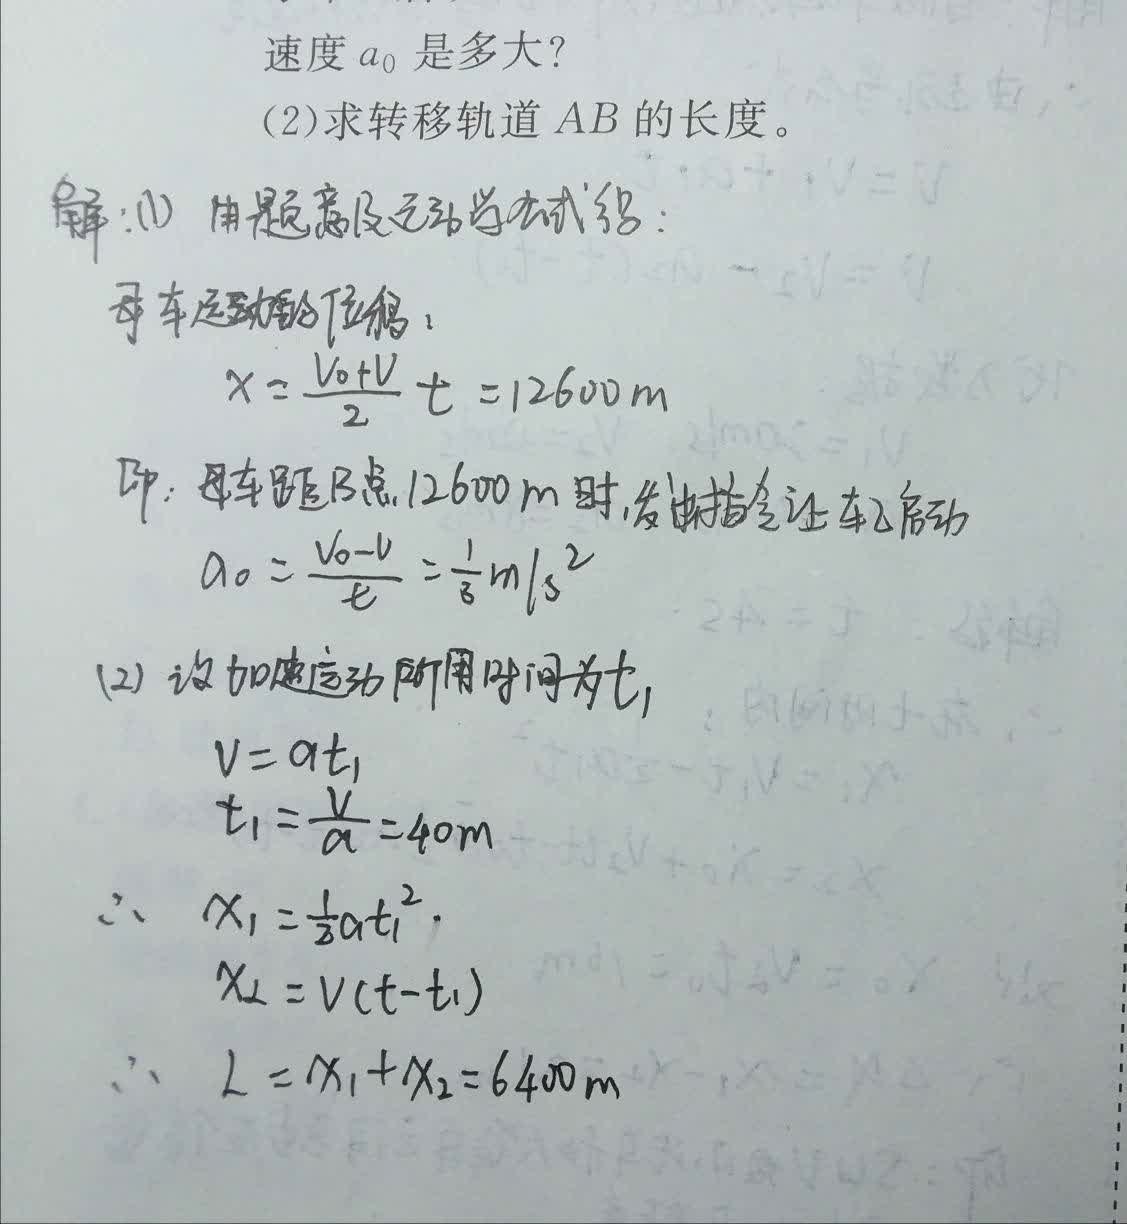 速度 a₀ 是多大?
(2)求转移轨道 AB 的长度。
解:(1) 由题意及运动学公式得:
母车运动的位移:
x = (v₀+v)/2 t = 12600 m
即:母车距B点12600 m 时,发出指令让车乙启动
a₀ = (v₀-v)/t = 1/3 m/s²
(2) 设加速运动所用时间为t₁
v = at₁
t₁ = v/a = 40m
∴ x₁ = 1/2 at₁².
x₂ = v(t-t₁)
∴ L = x₁+x₂ = 6400 m